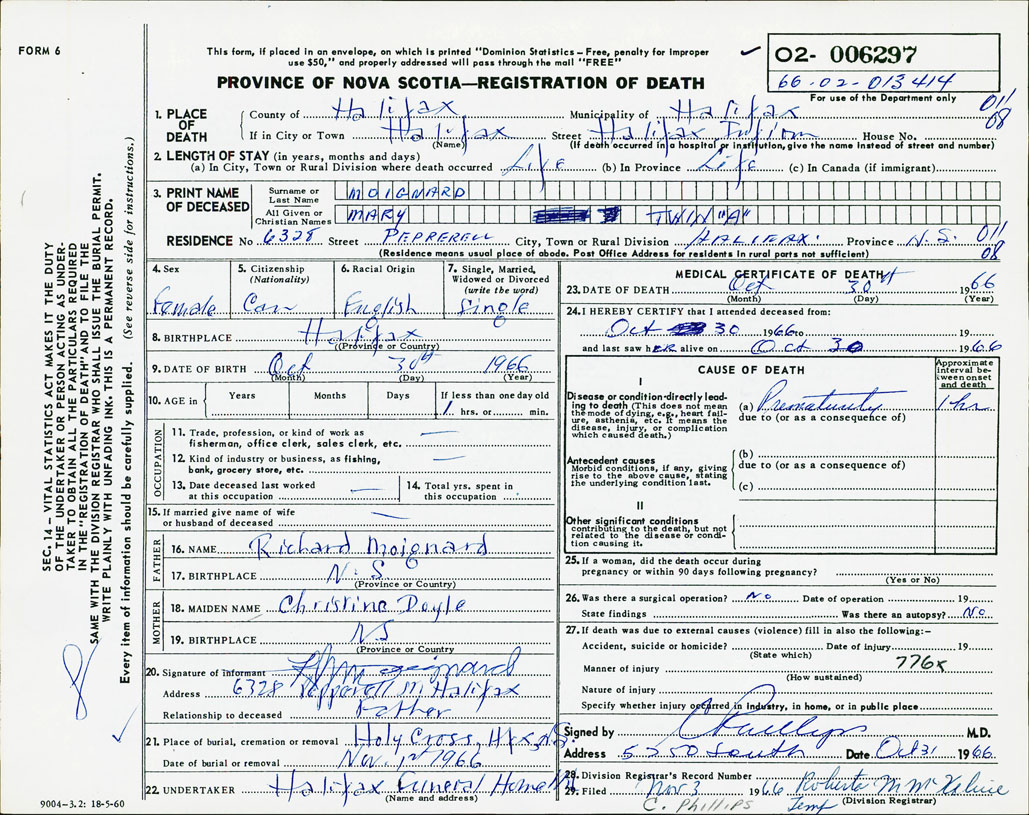 FORM 6
This form, if placed in an envelope, on which is printed "Dominion Statistics – Free, penalty for improper
use $50," and properly addressed will pass through the mail "FREE"
PROVINCE OF NOVA SCOTIA—REGISTRATION OF DEATH
02- 006297
66-02-013414
For use of the Department only
011
08
1. PLACE OF DEATH
County of Halifax Municipality of Halifax
If in City or Town Halifax Street Halifax House No.
(Name) (If death occurred in a hospital or institution, give the name instead of street and number)
2. LENGTH OF STAY (in years, months and days)
(a) In City, Town or Rural Division where death occurred Life (b) In Province Life (c) In Canada (if immigrant)
3. PRINT NAME OF DECEASED
Surname or Last Name MOIGNARD
All Given or Christian Names MARY TWIN "A"
RESIDENCE No. 6328 Street PEPPERELL City, Town or Rural Division HALIFAX Province N.S. 011
08
(Residence means usual place of abode. Post Office Address for residents in rural parts not sufficient)
4. Sex Female
5. Citizenship (Nationality) Can
6. Racial Origin English
7. Single, Married, Widowed or Divorced (write the word) Single
8. BIRTHPLACE Halifax
(Province or Country)
9. DATE OF BIRTH Oct 30th 1966
(Month) (Day) (Year)
10. AGE in Years Months Days If less than one day old
1 hrs. or min.
OCCUPATION
11. Trade, profession, or kind of work as
fisherman, office clerk, sales clerk, etc. —
12. Kind of industry or business, as fishing,
bank, grocery store, etc. —
13. Date deceased last worked
at this occupation —
14. Total yrs. spent in
this occupation
15. If married give name of wife
or husband of deceased —
FATHER
16. NAME Richard Moignard
17. BIRTHPLACE N.S
(Province or Country)
MOTHER
18. MAIDEN NAME Christine Doyle
19. BIRTHPLACE NS
(Province or Country)
20. Signature of informant Moignard
Address 6328 Pepperell St Halifax
Relationship to deceased Father
21. Place of burial, cremation or removal Holy Cross, Hfx, N.S.
Date of burial or removal Nov. 1st 1966
22. UNDERTAKER Halifax Funeral Home
(Name and address)
MEDICAL CERTIFICATE OF DEATH
23. DATE OF DEATH Oct 30th 1966
(Month) (Day) (Year)
24. I HEREBY CERTIFY that I attended deceased from:
Oct 30 1966 to 19
and last saw her alive on Oct 30 1966
CAUSE OF DEATH
Approximate interval between onset and death
I
Disease or condition directly leading to death (This does not mean the mode of dying, e.g., heart failure, asthenia, etc. It means the disease, injury, or complication which caused death.)
(a) Prematurity 1 hr
due to (or as a consequence of)
Antecedent causes
Morbid conditions, if any, giving rise to the above cause, stating the underlying condition last.
(b)
due to (or as a consequence of)
(c)
II
Other significant conditions
contributing to the death, but not related to the disease or condition causing it.
25. If a woman, did the death occur during
pregnancy or within 90 days following pregnancy?
(Yes or No)
26. Was there a surgical operation? No Date of operation 19
State findings Was there an autopsy? No
27. If death was due to external causes (violence) fill in also the following:–
Accident, suicide or homicide? Date of injury 19
(State which)
Manner of injury 776x
(How sustained)
Nature of injury
Specify whether injury occurred in industry, in home, or in public place
Signed by C Phillips M.D.
Address 5250 South Date Oct 31 1966
28. Division Registrar's Record Number
29. Filed Nov 3 1966 Roberta M
C. Phillips Temp (Division Registrar)
SEC. 14 – VITAL STATISTICS ACT MAKES IT THE DUTY
OF THE UNDERTAKER OR PERSON ACTING AS UNDER-
TAKER TO OBTAIN ALL THE PARTICULARS REQUIRED
IN THE "REGISTRATION OF DEATH" AND TO FILE THE
SAME WITH THE DIVISION REGISTRAR WHO SHALL ISSUE THE BURIAL PERMIT.
WRITE PLAINLY WITH UNFADING INK. THIS IS A PERMANENT RECORD.
Every item of information should be carefully supplied. (See reverse side for instructions.)
9004–3.2: 18-5-60